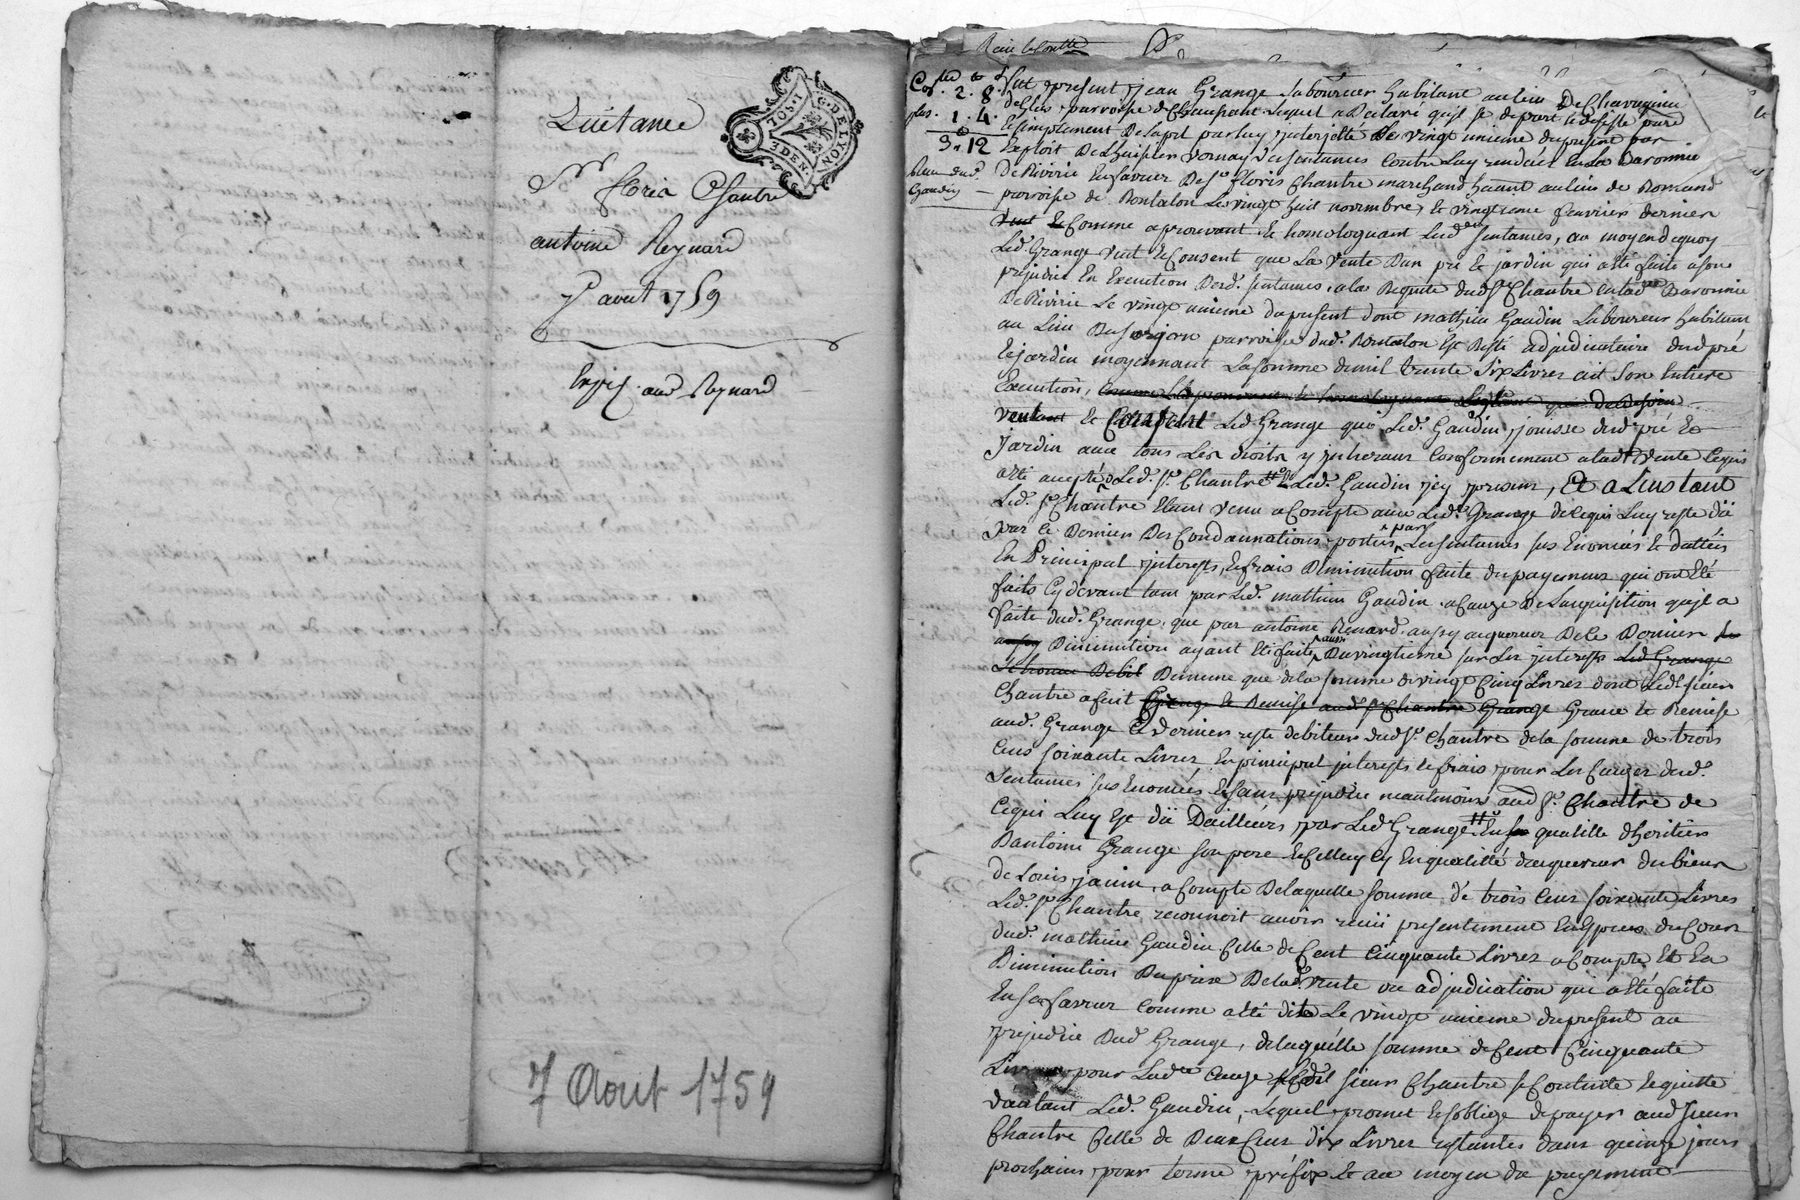 Quittance
Sr floris Chantre
antoine Reynard
7e aout 1759
Exp.
aud. Reynard
G. DE LYON
3 DEN
7 Aout 1759
2. 8.
1. 4.
3. 12
Gaudin
fut present jean Grange laboureur habitant au lieu De Chavagnieu
parroisse de Chaussant lequel a Declaré qu'il se depart et desiste pure
et simplement De lapel par luy interjetté De vingt unieme du present par
Exploit De Lhuissier Vornay Des sentances Contre Luy rendues En La Baronnie
De Riverie En faveur De Sr floris Chantre marchand hant au lieu de Romand
parroisse de Rontalon Les vingt huit novembre, et vingtieme fevrier dernier
et Comme aprouvant et homologuant Lesd. sentances, au moyen dequoy
Led. Grange veut et Consent que La Vente Dun pré et jardin qui a été faite a son
prejudice En Execution Desd. sentances, a la Requete dud. Sr Chantre En lad. Baronnie
De Riverie Le vingt unieme du present dont mathieu Gaudin Laboureur habitant
au Lieu parroisse dud. Rontalon Est Resté adjudicataire dud. pré
et jardin moyennant La somme de mil trente six Livres ait Son Entiere
Execution,
et Consent Led. Grange que Led. Gaudin jouisse dud. pré Et
jardin avec tous Les droits y inherans Conformement a lad. Vente Cequi
a été accepté Led. Sr Chantre Et Led. Gaudin icy presens, Et a L'instant
Led. Sr Chantre Etant venu a Compte avec Led. Grange de Cequi Luy reste dû
par Ce Dernier Des Condannations portées par Les sentances sus Enoncées Et dattées
En Principal interests, et frais Diminution faite des payemens qui ont Eté
faits Cy devant tant par Led. mathieu Gaudin a Cauze De Lacquisition qu'il a
faite dud. Grange, que par antoine Renard aussy acquereur De Ce Dernier
Diminution ayant Eté faite aussi Du vingtieme sur Les interests
De meme que de la somme de vingt Cinq Livres dont Led. sieur
Chantre a fait Grace et Remise
aud. Grange Ce Dernier reste debiteur dud. Sr Chantre de la somme de trois
Cens soixante Livres En principal interests et frais pour Les Cauzes desd.
sentances sus Enoncées Et sans prejudice neantmoins aud. Sr Chantre de
Cequi Luy Est dû Dailleurs par Led. Grange En qualité dheritier
Dantoine Grange son pere et Celluy Cy En qualitté dacquereur du bien
de Louis janin, a Compte De laquelle somme de trois Cens soixante Livres
Led. Sr Chantre reconnoit avoir recüe presentement En Especes du Cours
dud. mathieu Gaudin Celle de Cent Cinquante Livres a Compte Et En
Diminution Du prix De lad. vente ou adjudication qui a été faite
En sa faveur Comme a été dite Le vingt unieme du present au
prejudice Dud. Grange, de laquelle somme de Cent Cinquante
Livres pour Lad. Cauze Led. sieur Chantre se Contente et quitte
dautant Led. Gaudin, Lequel promet et soblige de payer aud. sieur
Chantre Celle de Deux Cens dix Livres restantes dans quinze jours
prochains pour terme préfix et au moyen du payement